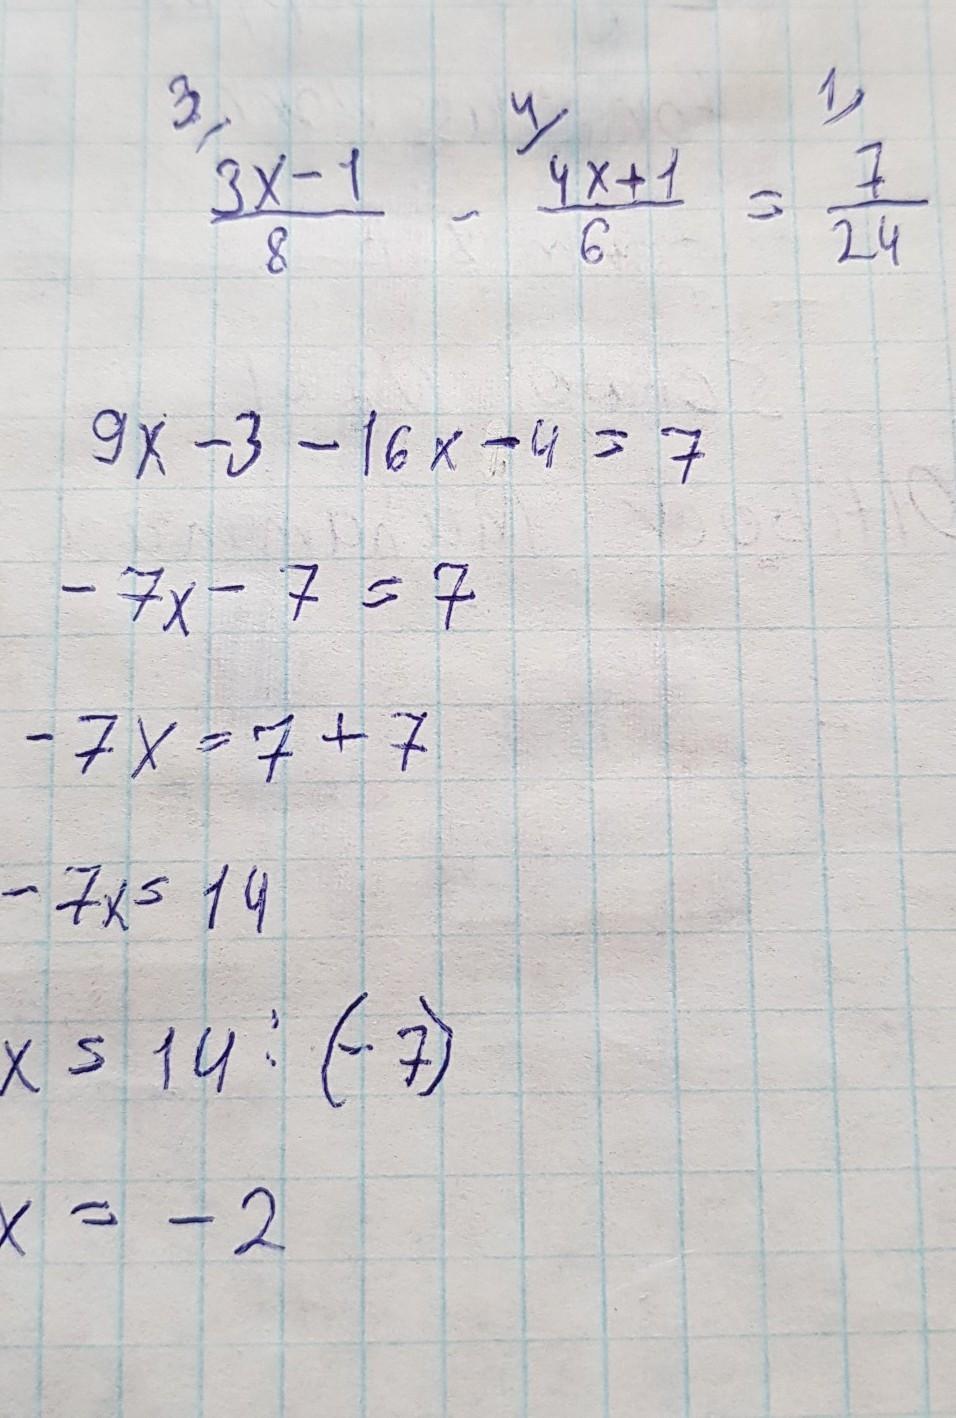 3, 4/ 1,
3x-1/8 - 4x+1/6 = 7/24
9x-3-16x-4=7
-7x-7=7
-7x=7+7
-7x=14
x=14:(-7)
x=-2